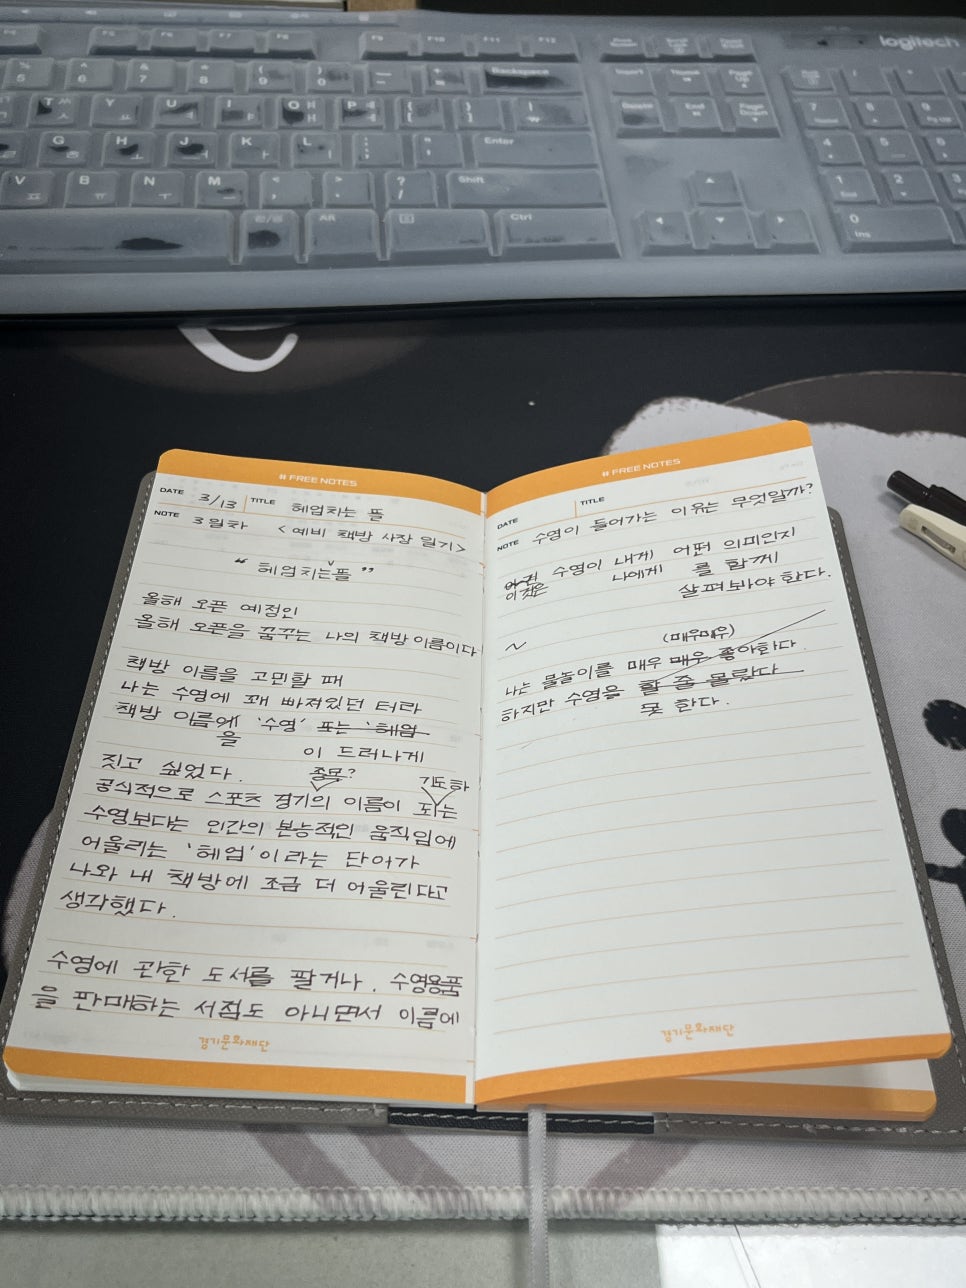 logitech
F5 F6 F7 F8 F9 F10 F11 F12
Backspace
Enter
Shift
Alt
Ctrl
Insert
Delete End Page Down
# FREE NOTES
DATE 3/13 TITLE 헤엄치는 뜰
NOTE 3일차 <예비 책방 사장 일기>
“ 헤엄치는 뜰 ”
올해 오픈 예정인
올해 오픈을 꿈꾸는 나의 책방 이름이다
책방 이름을 고민할 때
나는 수영에 꽤 빠져있던 터라
책방 이름에 '수영' 또는 '헤엄
을 이 드러나게
짓고 싶었다. 종목? 기도 하
공식적으로 스포츠 경기의 이름이 되는
수영보다는 인간의 본능적인 움직임에
어울리는 '헤엄'이라는 단어가
나와 내 책방에 조금 더 어울린다고
생각했다.
수영에 관한 도서를 팔거나, 수영용품
을 판매하는 서점도 아니면서 이름에
경기문화재단
# FREE NOTES
DATE TITLE
NOTE 수영이 들어가는 이유는 무엇일까?
수영이 내게 어떤 의미인지
이것은 나에게 를 함께
살펴봐야 한다.
(매우매우)
나는 물놀이를 매우 매우 좋아한다
하지만 수영을 할 줄 몰랐다
못 한다.
경기문화재단